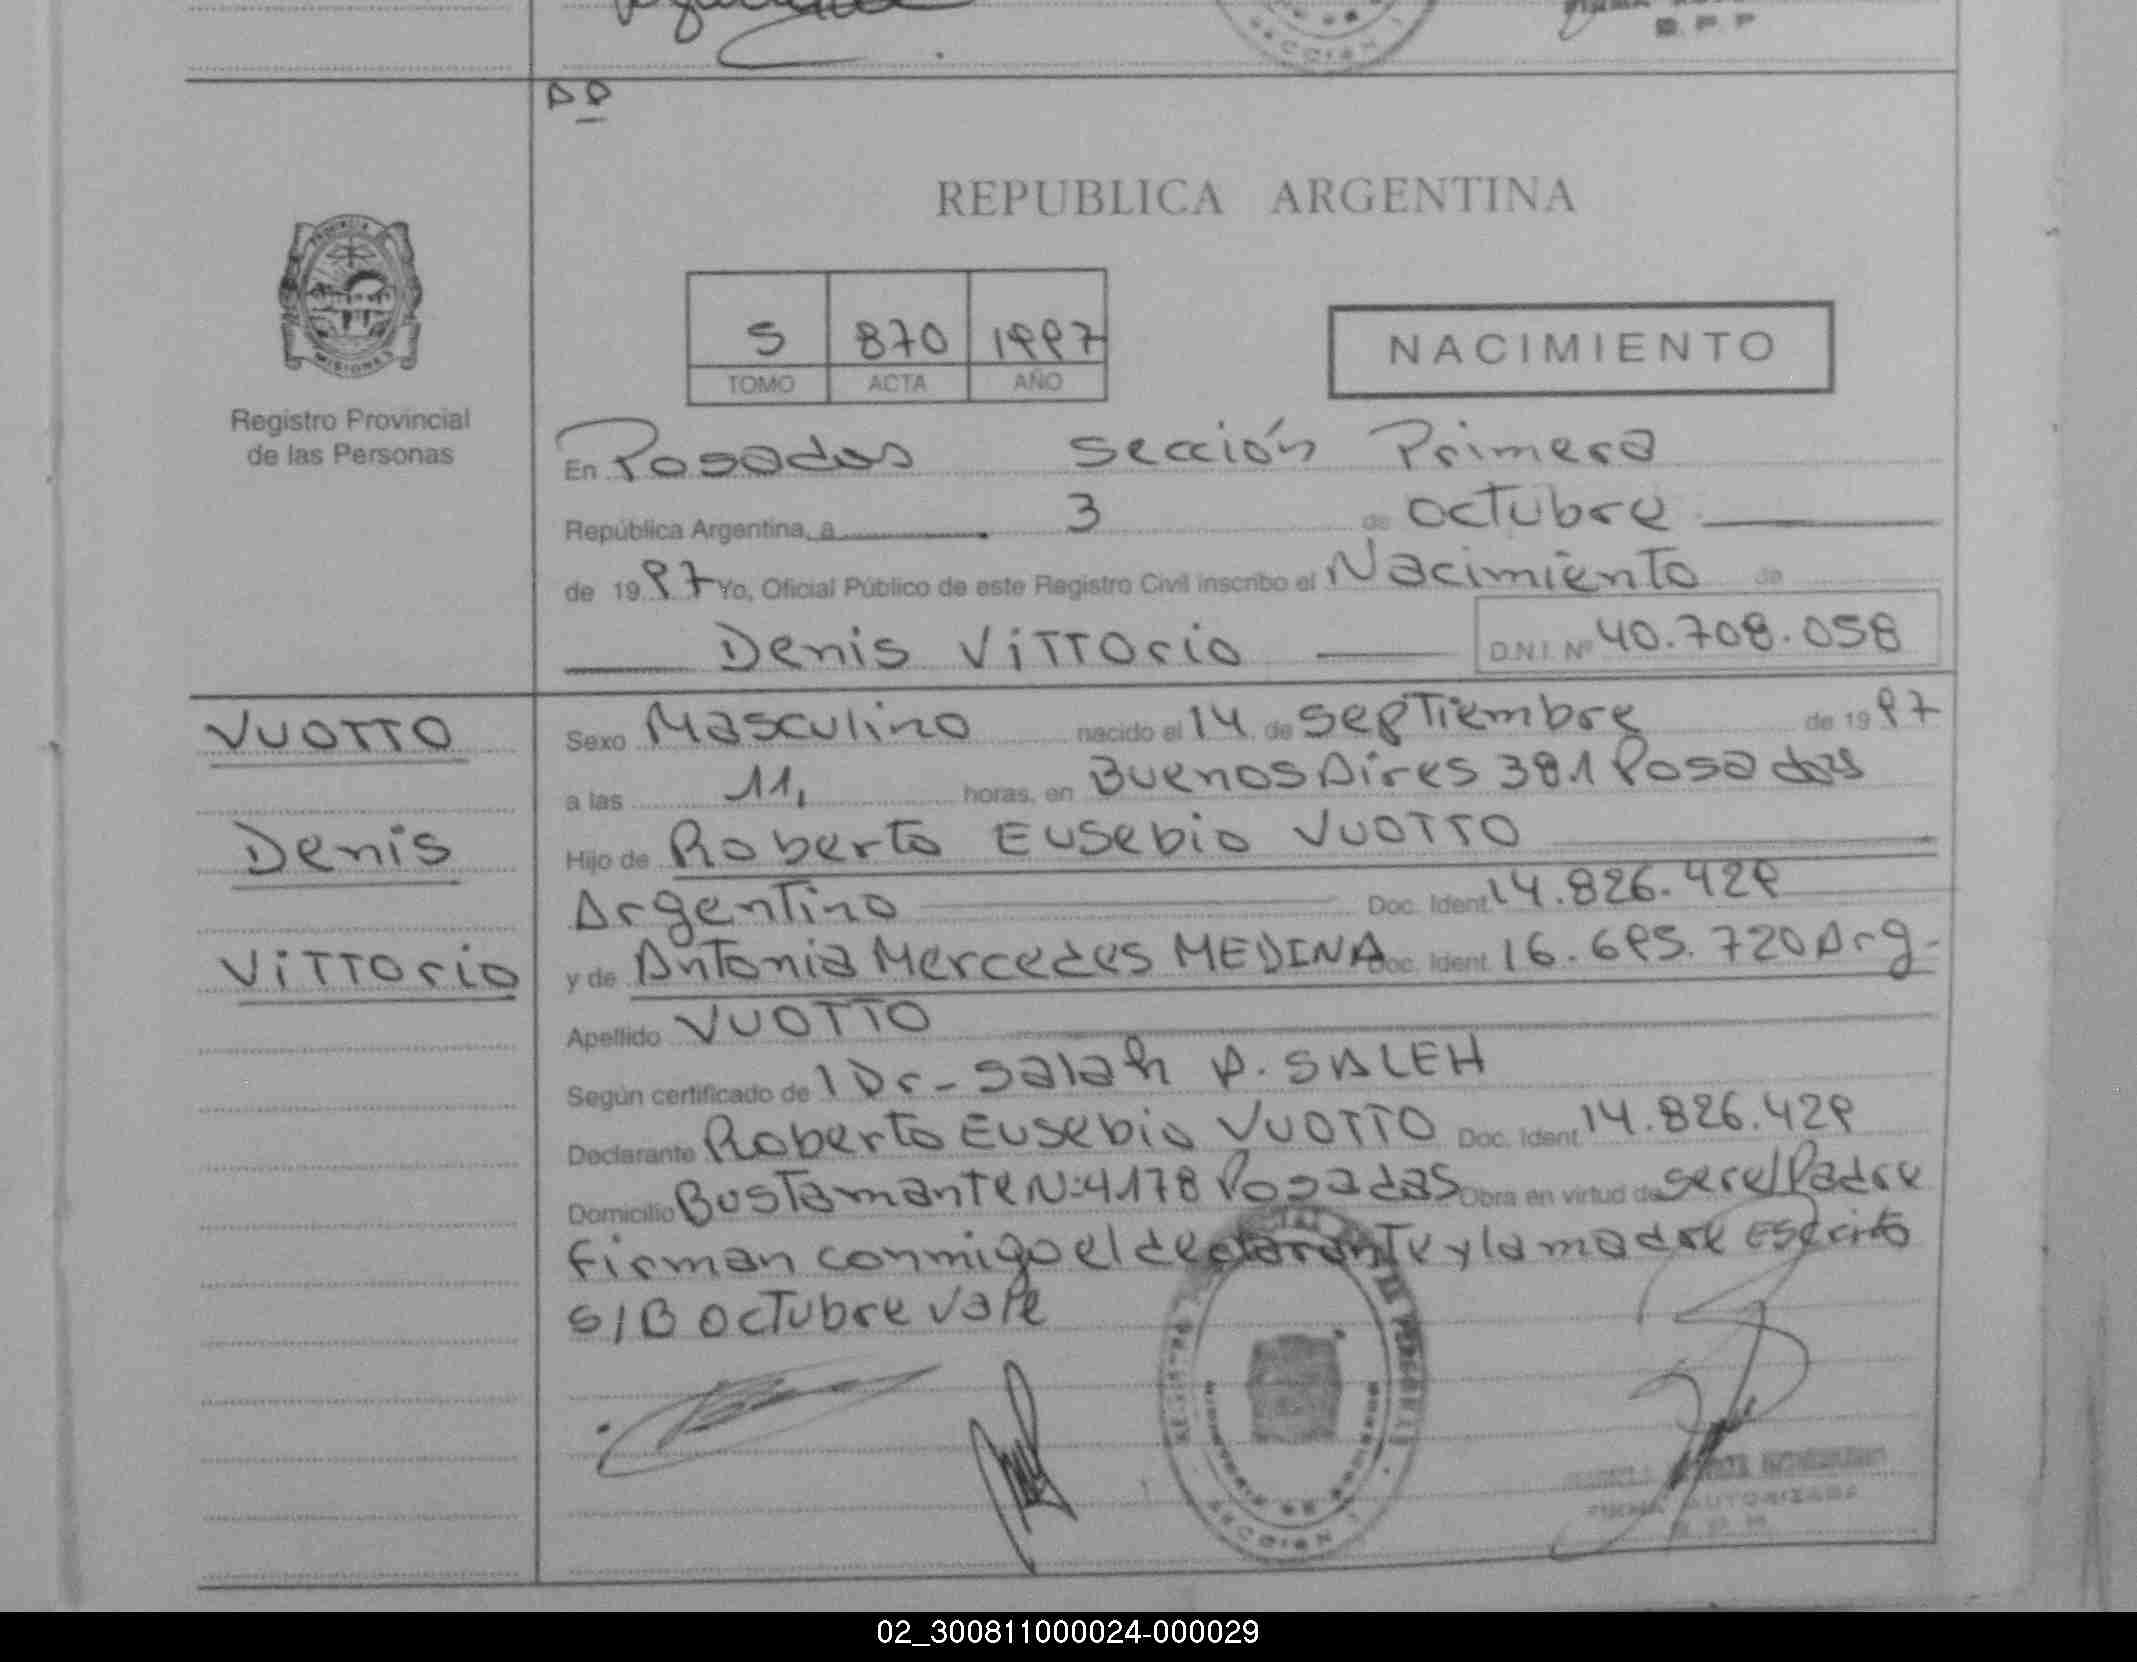 SECCION I
R. P. P
REPUBLICA ARGENTINA
PROVINCIA
MISIONES
Registro Provincial
de las Personas
5 870 1997
TOMO ACTA AÑO
NACIMIENTO
En Posadas Sección Primera
República Argentina, a 3 de Octubre
de 1997 Yo, Oficial Público de este Registro Civil inscribo el Nacimiento de
Denis Vittorio D.N.I. Nº 40.708.058
VUOTTO
Denis
Vittorio
Sexo Masculino nacido el 14 de Septiembre de 1997
a las 11, horas, en Buenos Aires 381 Posadas
Hijo de Roberto Eusebio VUOTTO
Argentino Doc. Ident. 14.826.429
y de Antonia Mercedes MEDINA Doc. Ident. 16.695.720 Arg-
Apellido VUOTTO
Según certificado de 1 Dr- Salah A. SALEH
Declarante Roberto Eusebio VUOTTO Doc. Ident. 14.826.429
Domicilio Bustamante N:4178 Posadas Obra en virtud de ser el Padre
firman conmigo el declarante y la madre Escrito
S/B Octubre vale
SECCION I
FIRMA AUTORIZADA
02_300811000024-000029